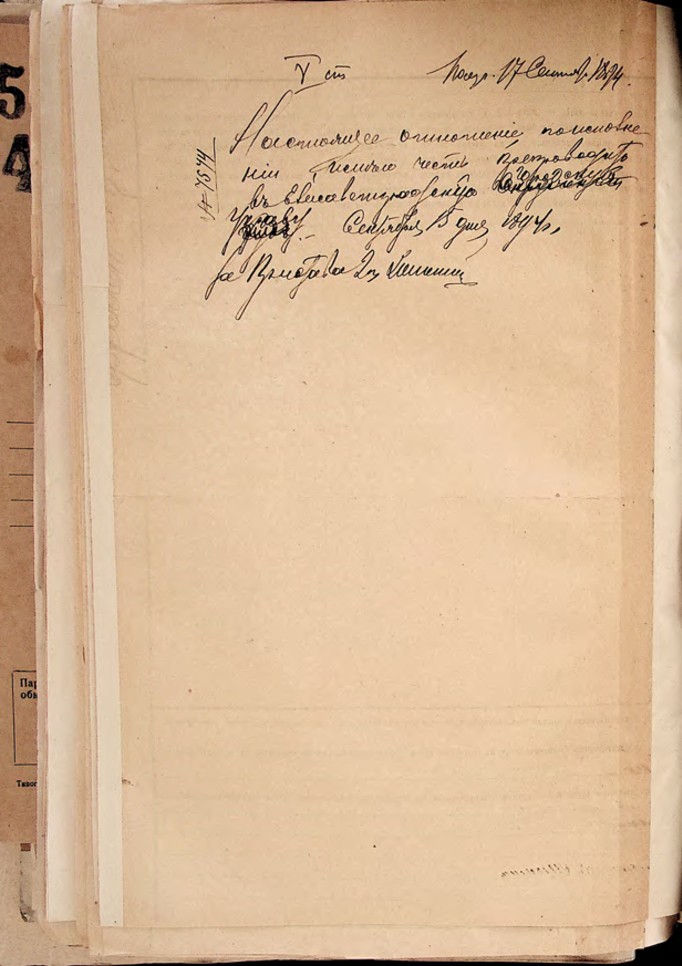 V ст
Получ. 17 Сентяб. 1894.
№ 7574
Настоящее отношеніе по исполне-
ніи честь препроводить
въ Елисаветградскую Городскую
Управу. Сентября 15 дня 1894 г.
За Пристава 2 ч.
5
4
Пар
обы
Типог